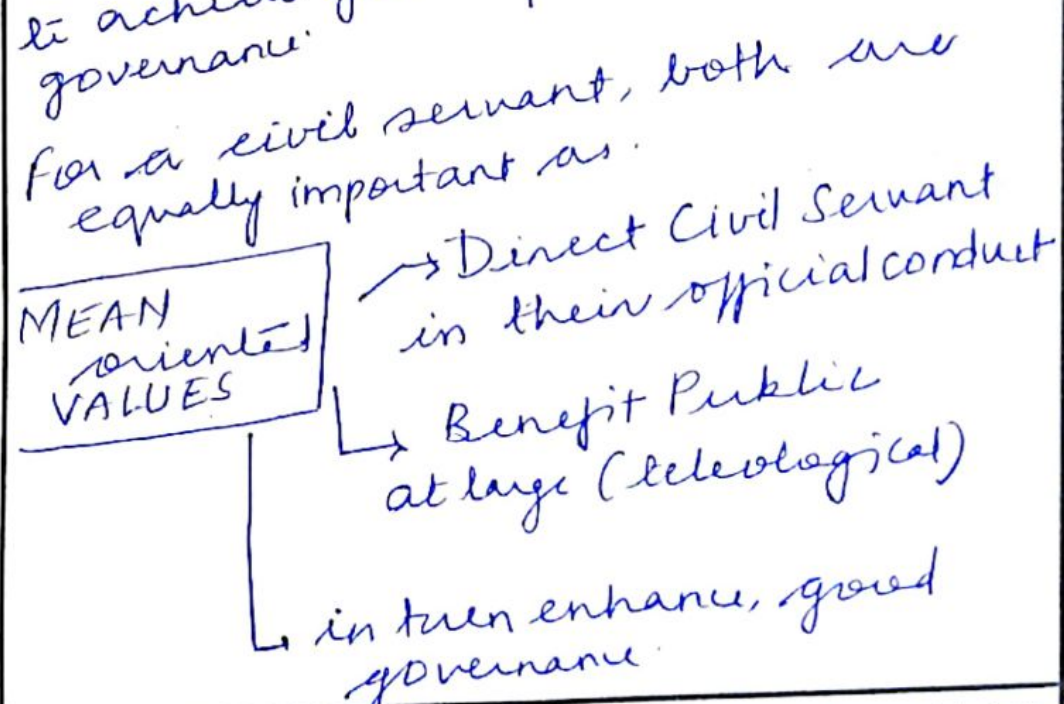 to
governance.
For a civil servant, both are
equally important as.
MEAN
oriented
VALUES
→ Direct Civil Servant
in their official conduct
→ Benefit Public
at large (teleological)
in turn enhance, good
governance.